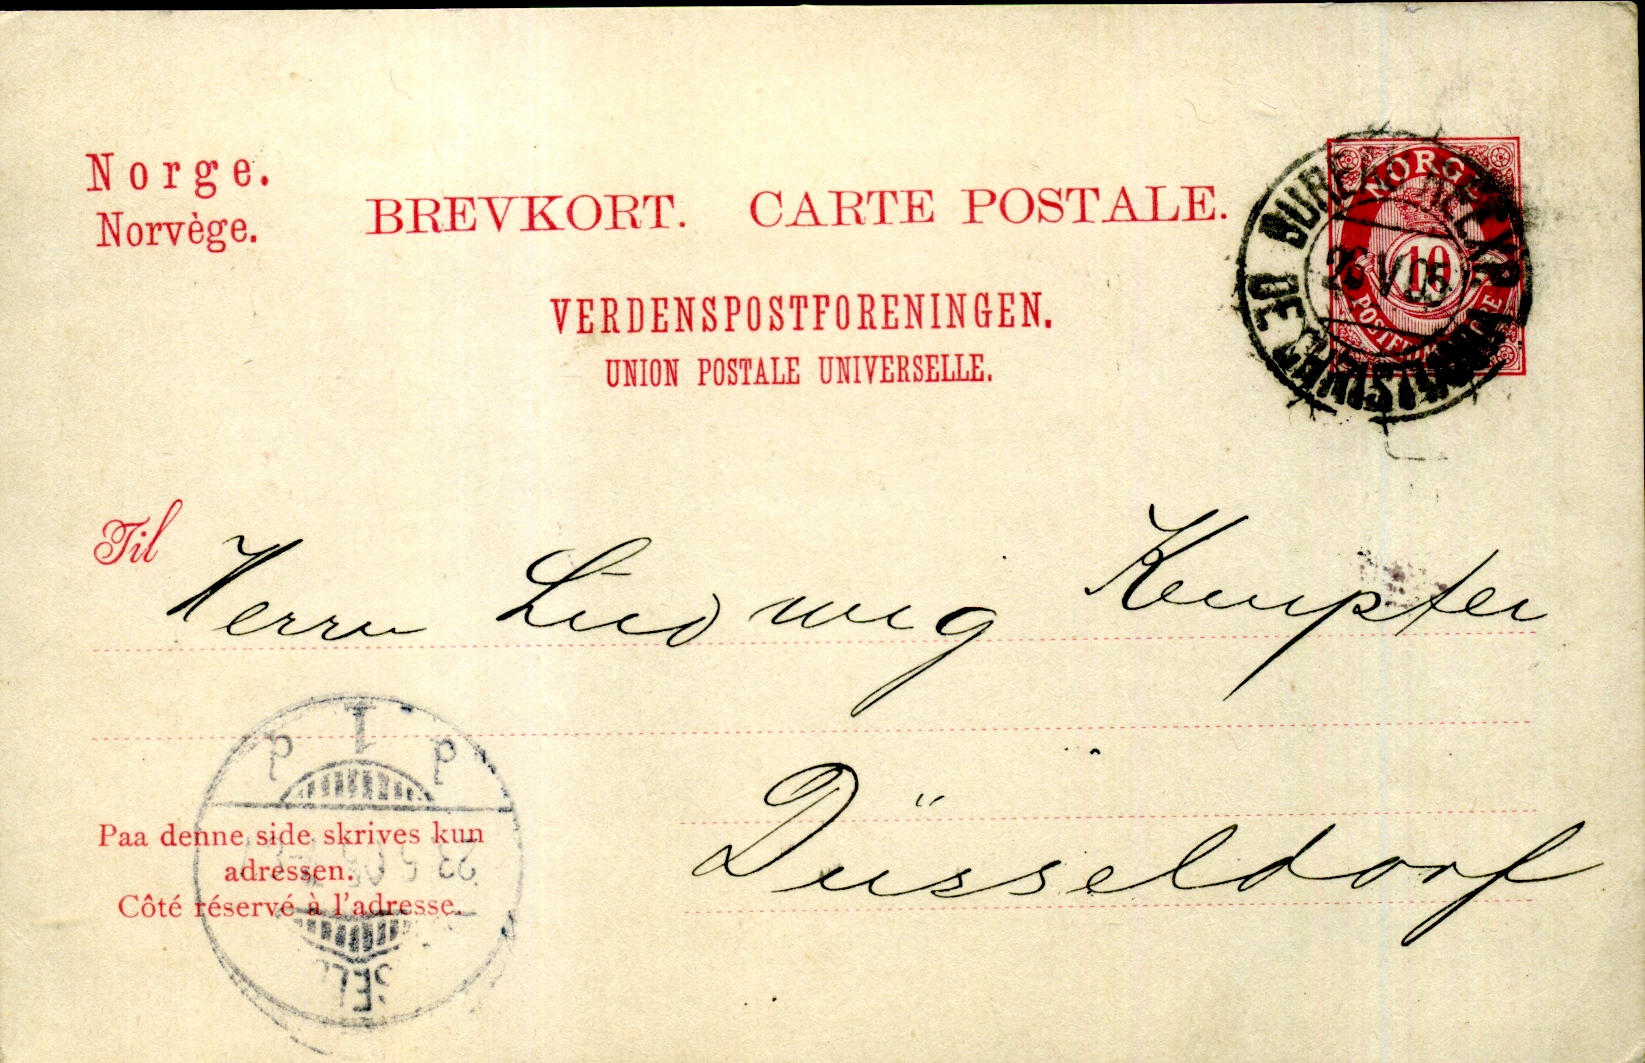 Norge.
Norvège.
BREVKORT. CARTE POSTALE.
VERDENSPOSTFORENINGEN.
UNION POSTALE UNIVERSELLE.
NORGE
10
BUREAU DE
V 05
DE KRISTIANIA
Til Herrn Ludwig Kempter
Düsseldorf
Paa denne side skrives kun
adressen.
Côté réservé à l'adresse.